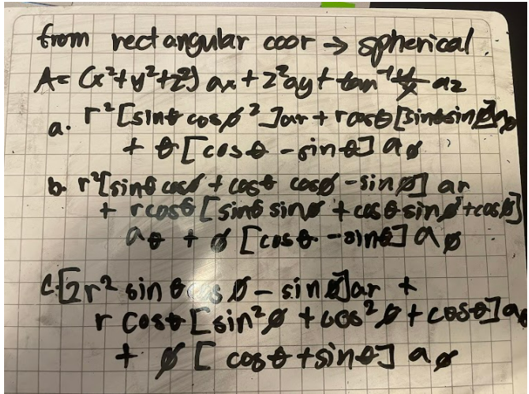 from rectangular coor → spherical.
A = (x²+y²+z²) ax + z²ay + tan⁻¹ y/x az
a. r²[sinθ cosφ²]ar + r cosθ [sinθ sinφ]
+ θ [cosθ - sinθ] aφ
b. r²[sinθ cosθ + cosθ cosφ - sinφ] ar
+ r cosθ [sinθ sinφ + cosθ sinφ + cosφ]
aθ + φ [cosθ - sinθ] aφ
c. [2r² sinθ cosφ - sinφ]ar +
r cosθ [sin²φ + cos²φ + cosθ] a
+ φ [cosθ + sinθ] aφ